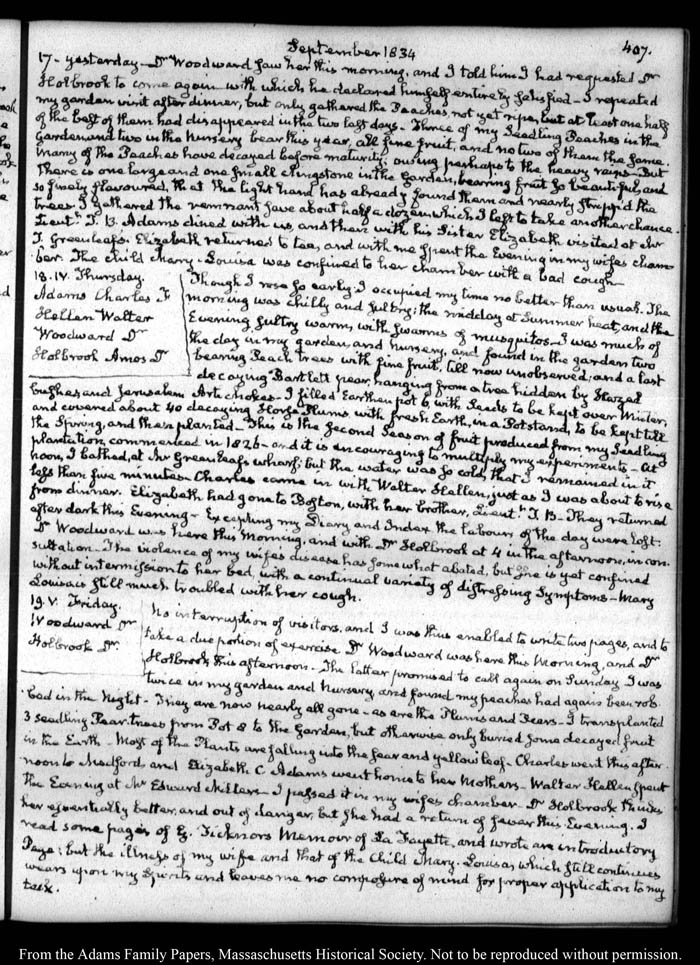 September 1834
407.
17 - yesterday - Dr Woodward saw her this morning, and I told him I had requested Dr
Holbrook to come again with which he declared himself entirely satisfied - I repeated
my garden visit after dinner, but only gathered the Peaches not yet ripe, but at least one half
of the best of them had disappeared in the two last days - Three of my Seedling Peaches in the
Garden and two in the Nursery bear this year, all fine fruit, and no two of them the same.
Many of the Peaches have decayed before maturity; owing perhaps to the heavy rains - But
There is one large and one small clingstone in the Garden, bearing fruit so beautiful, and
so finely flavoured, that the light hand has already found them and nearly stripp'd the
trees. I gathered the remnant save about half a dozen which I left to take another chance.
Lieutt. T. B. Adams dined with us, and then with his Sister Elizabeth visited at Mr
T. Greenleaf's. Elizabeth returned to tea, and with me spent the Evening in my wife's cham-
ber. The child Mary-Louisa was confined to her chamber with a bad cough
18. IV. Thursday.
Adams Charles F
Hellen Walter
Woodward Dr
Holbrook Amos Dr
Though I rose so early, I occupied my time no better than usual. The
morning was chilly and sultry; the midday at Summer heat, and the
Evening sultry warm, with swarms of musquitos - I was much of
the day in my garden, and nursery, and found in the garden two
bearing Peach trees with fine fruit, till now unobserved; and a last
decaying Bartlett pear, hanging from a tree hidden by Hazel
bushes, and Jerusalem Artichokes - I filled Earthen pot 6, with Seeds to be kept over Winter,
and covered about 40 decaying Horse Plums with fresh Earth, in a Pot stand, to be kept till
the Spring, and then planted - This is the Second Season of fruit produced from my Seedling
plantation, commenced in 1826 - and it is encouraging to multiply my experiments - At
noon, I bathed, at Mr Greenleaf's wharf; but the water was so cold, that I remained in it
less than five minutes - Charles came in with Walter Hellen, just as I was about to rise
from dinner. Elizabeth had gone to Boston, with her brother, Lieutt. T. B - They returned
after dark this Evening - Excepting my Diary and Index the labours of the day were lost.
Dr Woodward was here this Morning, and with Dr Holbrook at 4 in the afternoon, in con-
sultation. The violence of my wife's disease has somewhat abated, but she is yet confined
without intermission to her bed, with a continual variety of distressing Symptoms - Mary
Louisa is still much troubled with her cough.
19. V. Friday.
Woodward Dr
Holbrook Dr.
No interruption of visitors, and I was thus enabled to write two pages, and to
take a due portion of exercise. Dr Woodward was here this Morning, and Dr
Holbrook this afternoon - The latter promised to call again on Sunday. I was
twice in my garden and Nursery, and found my peaches had again been rob-
bed in the Night - They are now nearly all gone - as are the Plums and Pears - I transplanted
3 seedling Pear-trees from Pot 8 to the Garden, but otherwise only buried some decayed fruit
in the Earth - Most of the Plants are falling into the sear and yellow leaf - Charles went this after-
noon to Medford, and Elizabeth C Adams went home to her Mothers - Walter Hellen spent
the Evening at Mr Edward Miller's - I passed it in my wife's chamber - Dr Holbrook thinks
her essentially better, and out of danger, but she had a return of fever this Evening. I
read some pages of G. Ticknor's Memoir of La Fayette, and wrote an introductory
Page; but the illness of my wife and that of the Child Mary-Louisa, which still continues
wears upon my Spirits and leaves me no composure of mind for proper application to my
task.
From the Adams Family Papers, Massachusetts Historical Society. Not to be reproduced without permission.